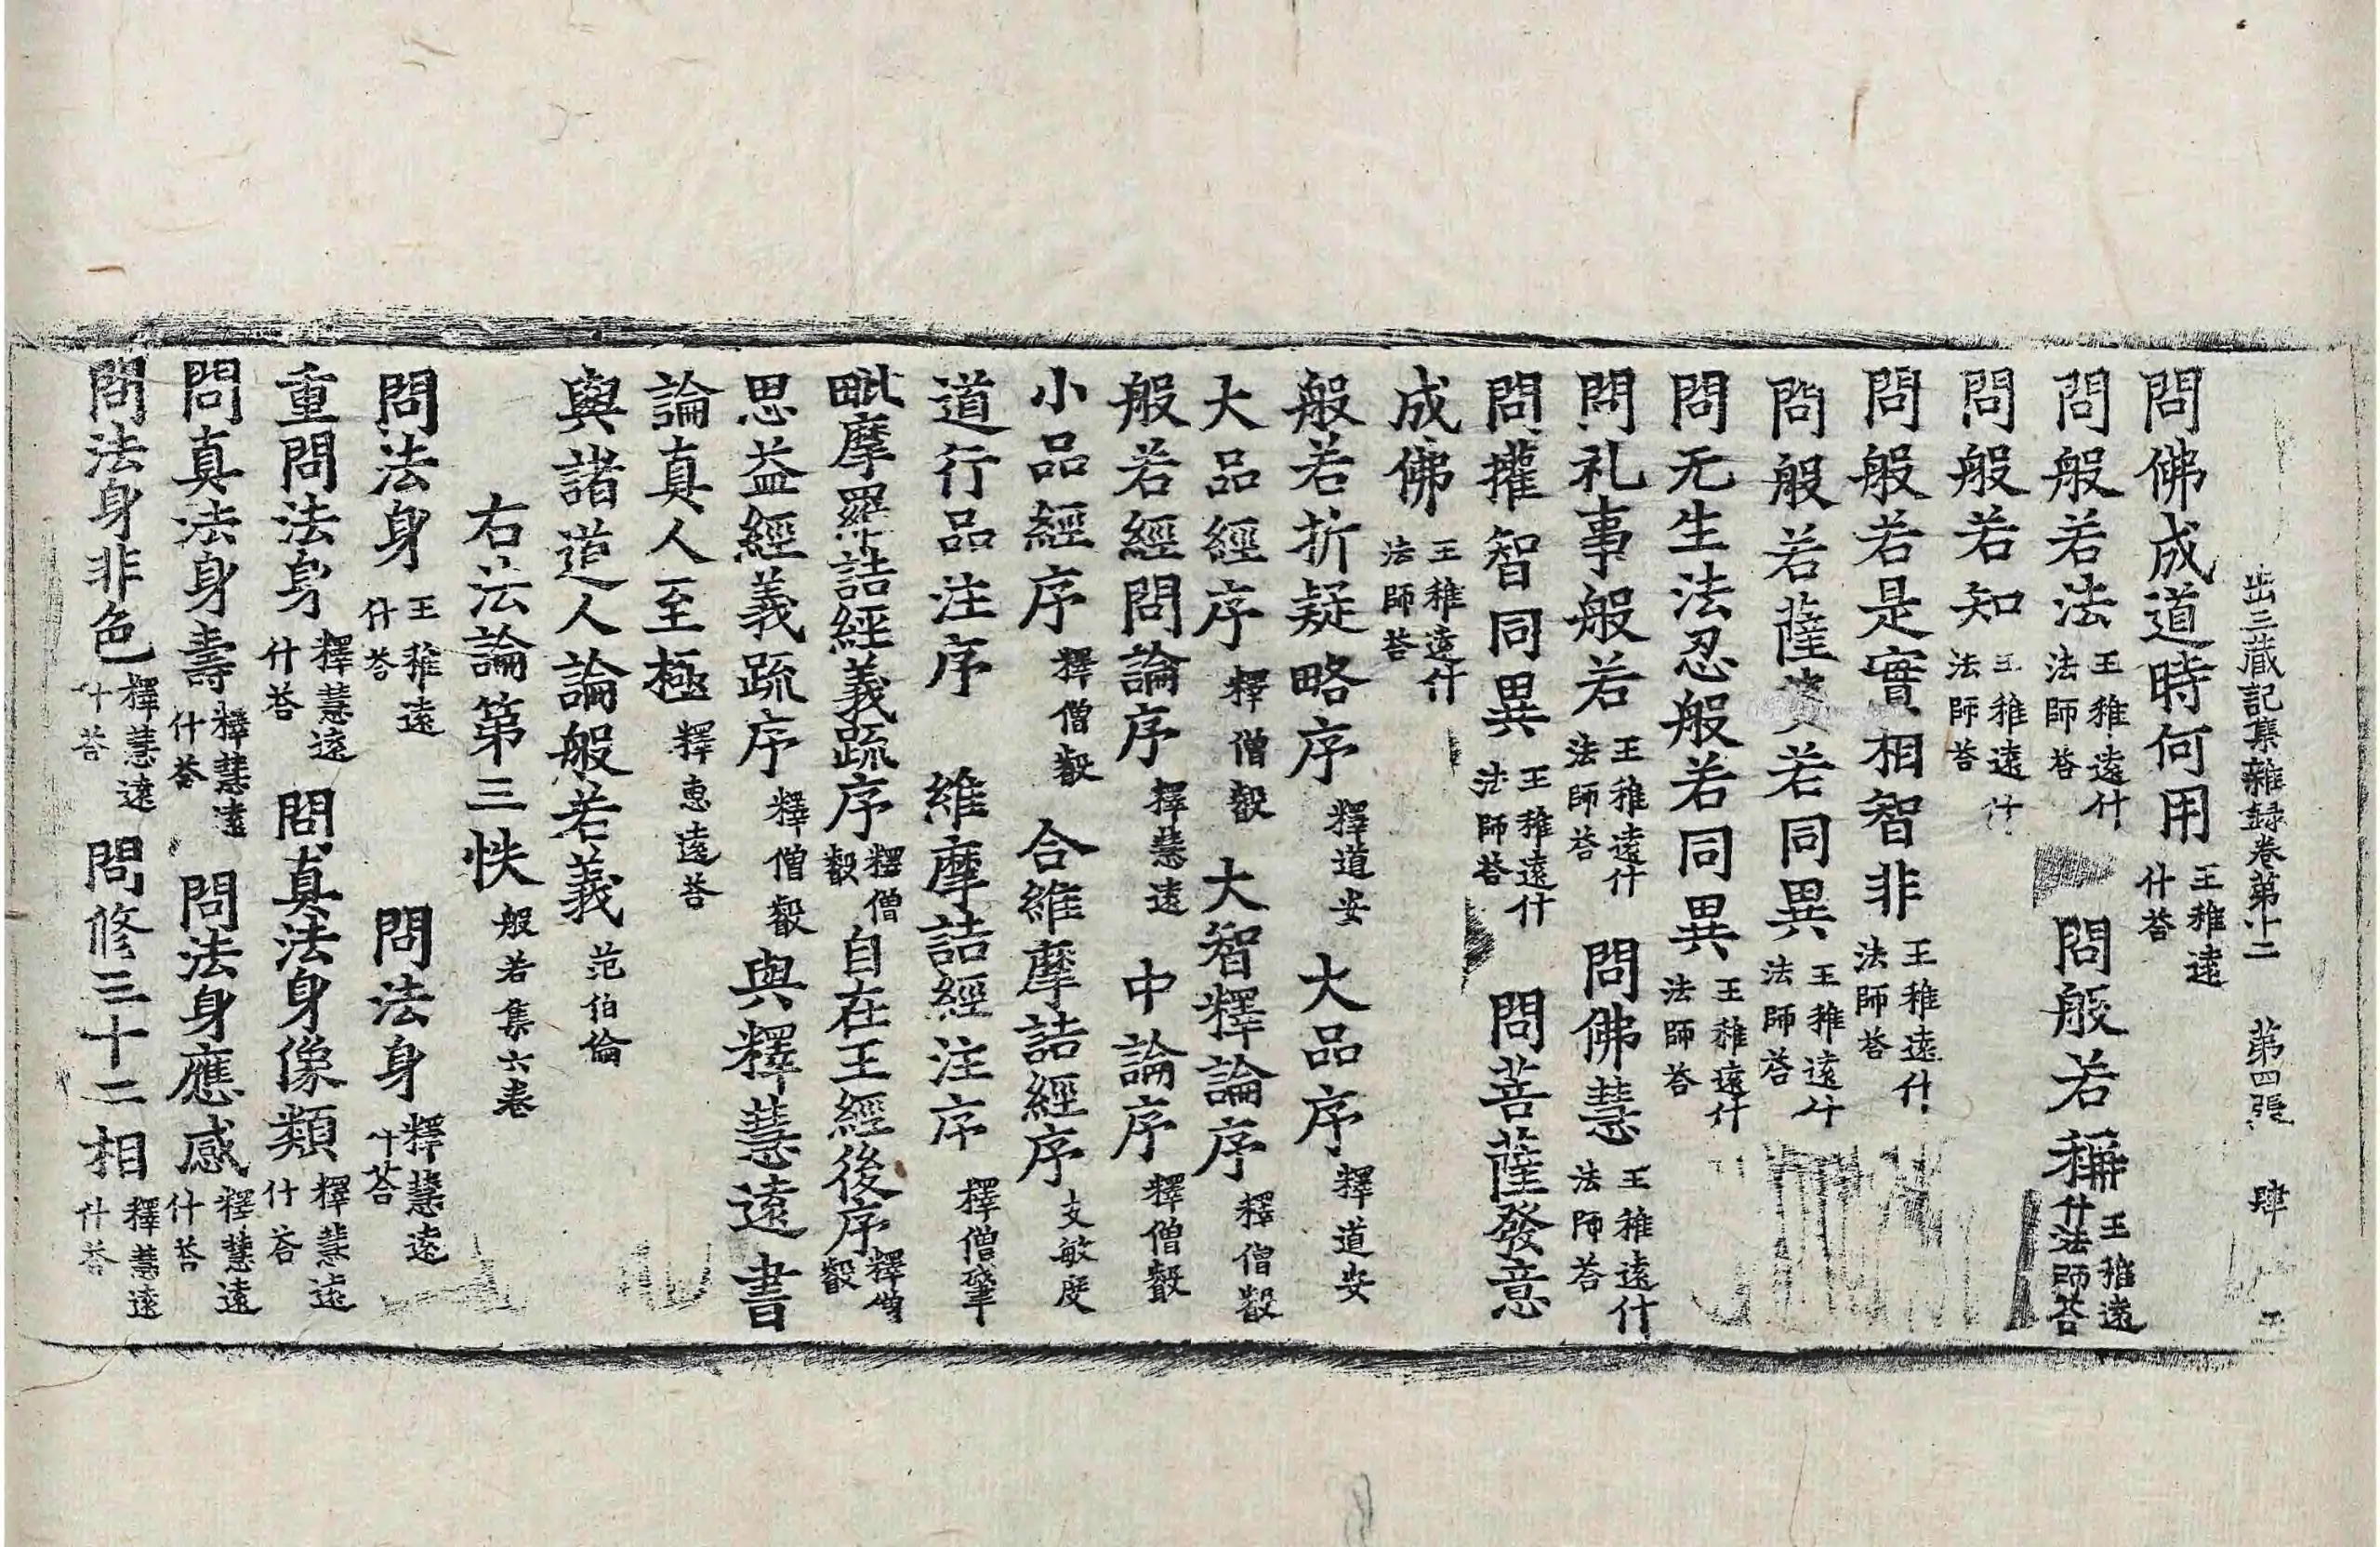 出三藏記集雜録卷第十二 第四張 肆
問佛成道時何用 王稚遠什荅
問般若法 王稚遠什法師荅 問般若稱 王稚遠什法師荅
問般若知 王稚遠什法師荅
問般若是實相智非 王稚遠什法師荅
問般若薩婆若同異 王稚遠什法師荅
問无生法忍般若同異 王稚遠什法師荅
問礼事般若 王稚遠什法師荅 問佛慧 王稚遠什法師荅
問㩲智同異 王稚遠什法師荅 問菩薩發意
成佛 王稚遠什法師荅
般若折疑略序 釋道安 大品序 釋道安
大品經序 釋僧叡 大智釋論序 釋僧叡
般若經問論序 釋慧遠 中論序 釋僧叡
小品經序 釋僧叡 合維摩詰經序 支敏度
道行品注序 維摩詰經注序 釋僧肇
毗摩羅詰經義䟽序 釋僧叡 自在王經後序 釋僧叡
思益經義䟽序 釋僧叡 與釋慧遠書
論真人至極 釋惠遠荅
與諸道人論般若義 范伯倫
右法論第三帙 般若集六卷
問法身 王稚遠什荅 問法身 釋慧遠什荅
重問法身 釋慧遠什荅 問真法身像類 釋慧遠什荅
問真法身壽 釋慧遠什荅 問法身應感 釋慧遠什荅
問法身非色 釋慧遠什荅 問修三十二相 釋慧遠什荅